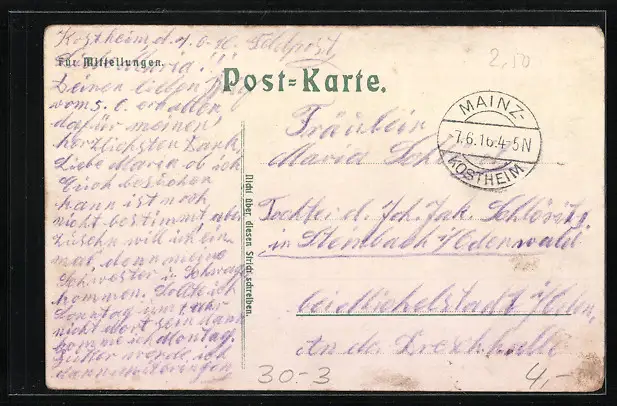 Kostheim d. 7. 6. 16. Feldpost
Liebe Maria!
Für Mitteilungen.
Post-Karte.
Deinen lieben
vom 5. 6. erhalten
dafür meinen
herzlichsten Dank.
Liebe Maria ob ich
Euch besuchen
kann ist noch
nicht bestimmt, aber
will ich ein-
mal, denn meine
Schwester u. Schwager
kommen. Sollte ich
Sonntag um 1 Uhr
nicht dort sein dann
komme ich Montag.
werde ich
dann mitbringen
Nicht über diesen Strich schreiben.
MAINZ-
7.6.16.4-5N
KOSTHEIM
2,50
Fräulein
Maria
Tochter d. Joh. Jak.
in Steinbach i/Odenwald
bei Michelstadt i/Oden,
An der Dreschhalle
30-3
4,-